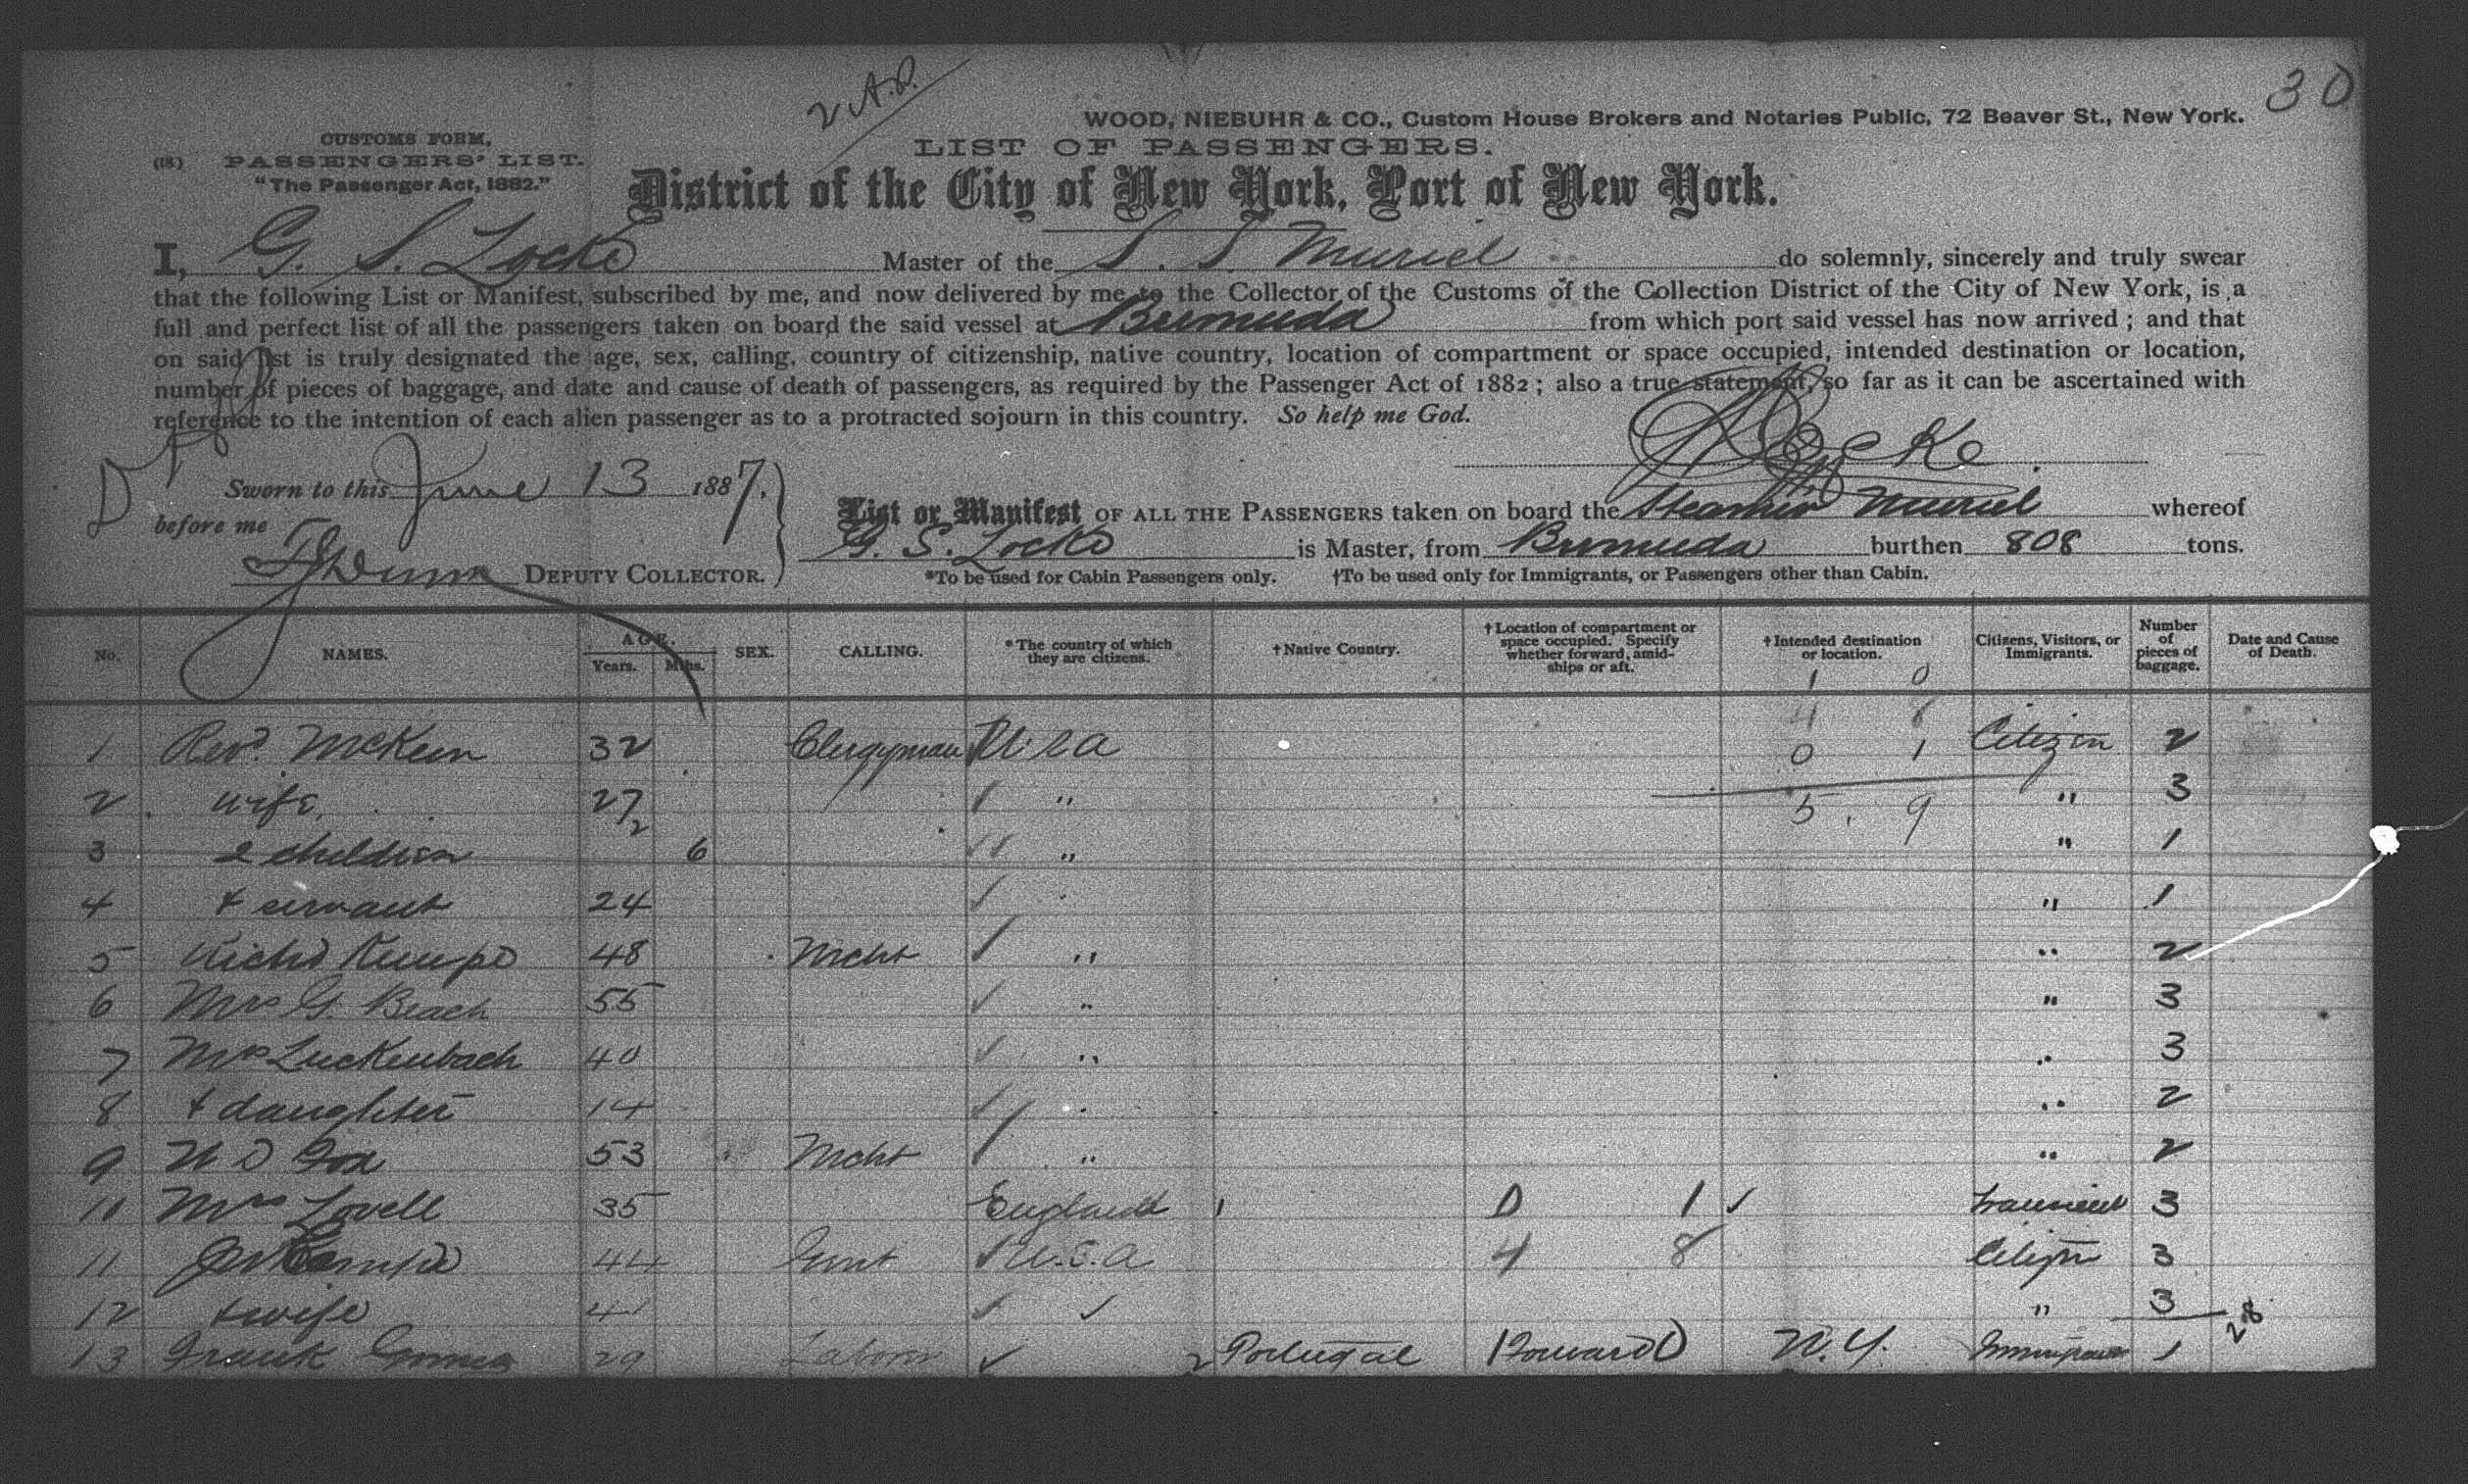 30
2 A.P.
WOOD, NIEBUHR & CO., Custom House Brokers and Notaries Public, 72 Beaver St., New York.
CUSTOMS FORM,
(18.) PASSENGERS' LIST.
"The Passenger Act, 1882."
LIST OF PASSENGERS.
District of the City of New York, Port of New York.
I, G. S. Locke Master of the S. S. Muriel do solemnly, sincerely and truly swear
that the following List or Manifest, subscribed by me, and now delivered by me to the Collector of the Customs of the Collection District of the City of New York, is a
full and perfect list of all the passengers taken on board the said vessel at Bermuda from which port said vessel has now arrived; and that
on said list is truly designated the age, sex, calling, country of citizenship, native country, location of compartment or space occupied, intended destination or location,
number of pieces of baggage, and date and cause of death of passengers, as required by the Passenger Act of 1882; also a true statement, so far as it can be ascertained with
reference to the intention of each alien passenger as to a protracted sojourn in this country. So help me God.
Locke
Sworn to this June 13 1887,
before me
DEPUTY COLLECTOR.
List or Manifest OF ALL THE PASSENGERS taken on board the Steamer Muriel whereof
G. S. Locke is Master, from Bermuda burthen 808 tons.
*To be used for Cabin Passengers only. †To be used only for Immigrants, or Passengers other than Cabin.
No. NAMES. AGE. Years. Mths. SEX. CALLING. *The country of which they are citizens. †Native Country. †Location of compartment or space occupied. Specify whether forward, amidships or aft. †Intended destination or location. Citizens, Visitors, or Immigrants. Number of pieces of baggage. Date and Cause of Death.
1 0
4 8
1 Revd. McKeen 32 Clergyman U.S.A 0 1 Citizen 2
2 wife, 27 " 5 . 9 " 3
3 2 children 2 6 " " 1
4 & servant 24 " 1
5 Richd Kempe 48 Mcht " " 2
6 Mrs G. Beach 55 " " 3
7 Mrs Luckenbach 40 " " 3
8 & daughter 14 " 2
9 53 Mcht " " 2
10 Mrs Lovell 35 England 0 1 ✓ transient 3
11 44 U.S.A 4 8 Citizen 3
12 & wife 41 ✓ " 3
28
13 Frank Gomes 29 Laborer ✓ 2 Portugal Forward N.Y. Immigrant 1